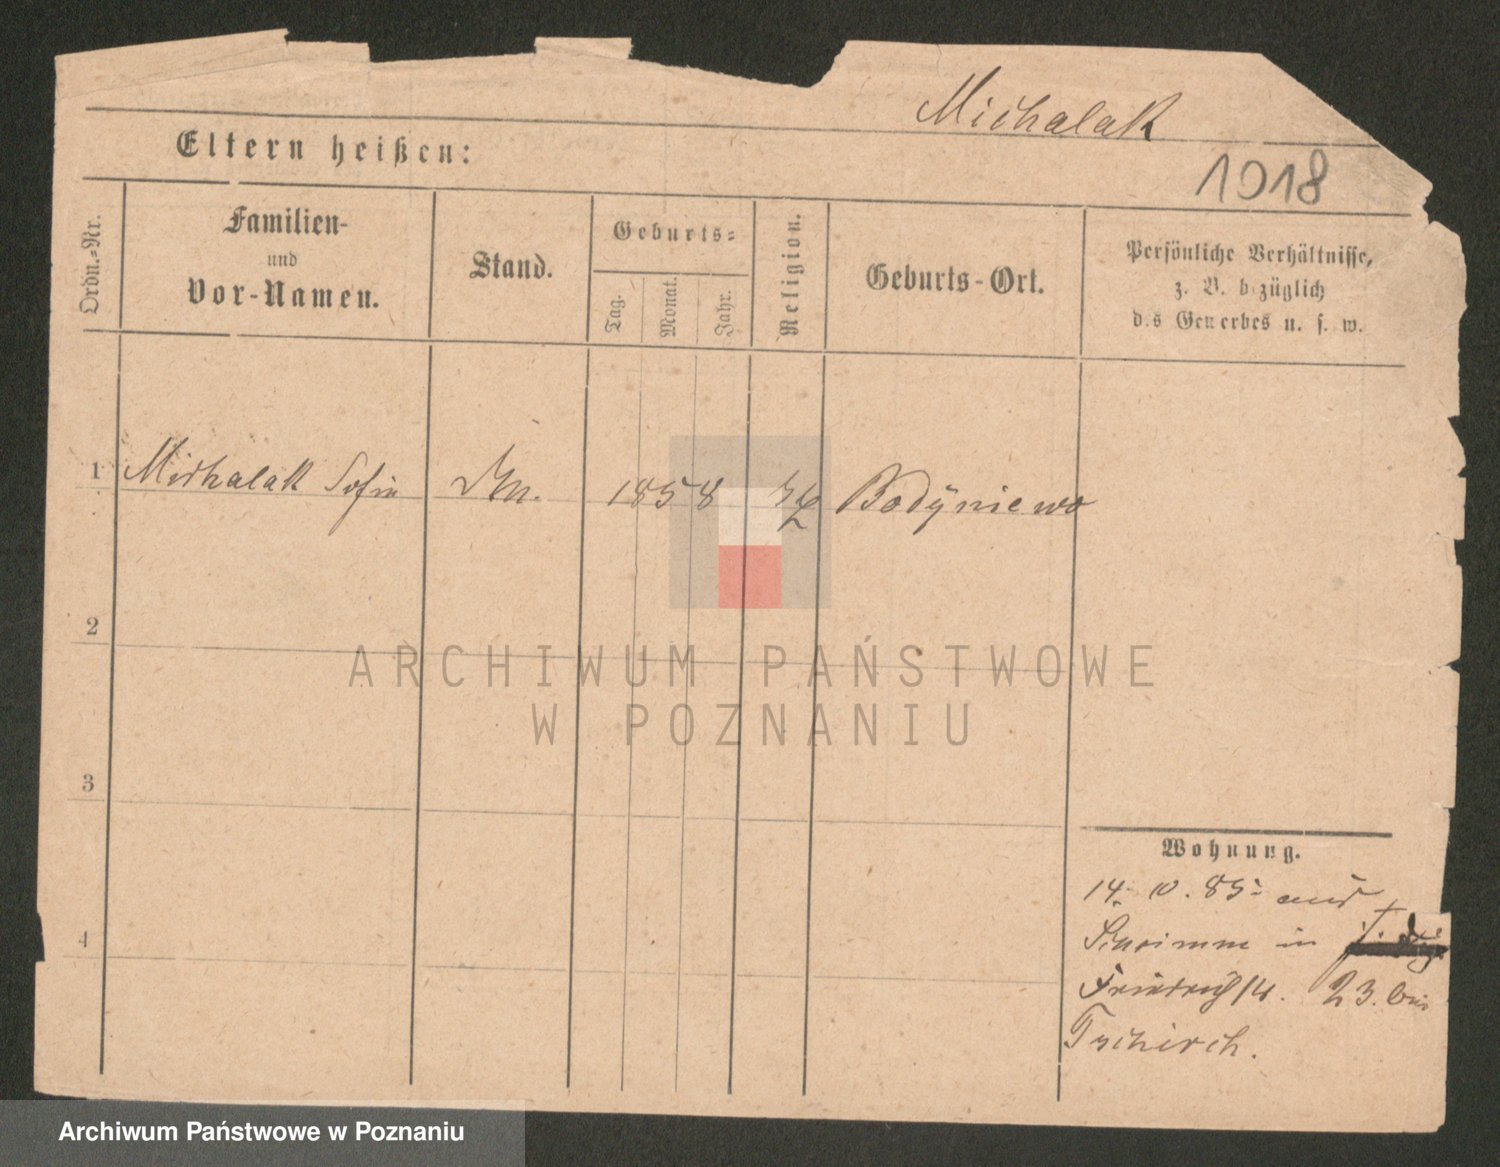 Michalak
1018
Eltern heißen:
Ordn.-Nr.
Familien-
und
Vor-Namen.
Stand.
Geburts-
Tag.
Monat.
Jahr.
Religion.
Geburts-Ort.
Persönliche Verhältnisse,
z. B. bezüglich
des Gewerbes u. s. w.
1 Michalak Sofie 1858 Bodyniewo
2
3
4
Wohnung.
14. 10. 85 aus
in
Friedrichstr. 23. bei
Tschirch.
ARCHIWUM PAŃSTWOWE
W POZNANIU
Archiwum Państwowe w Poznaniu